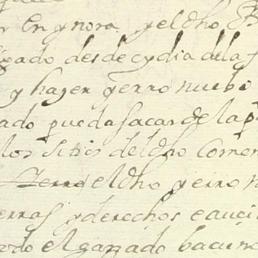 en ynora y el dho
gado desde oy dia de la f
y haser yerro nuebo
ado pueda sacar de la p
los sitios del dho Comen
Yerro el dho yerro n
erras y derechos e aucio
odo el ganado bacuno